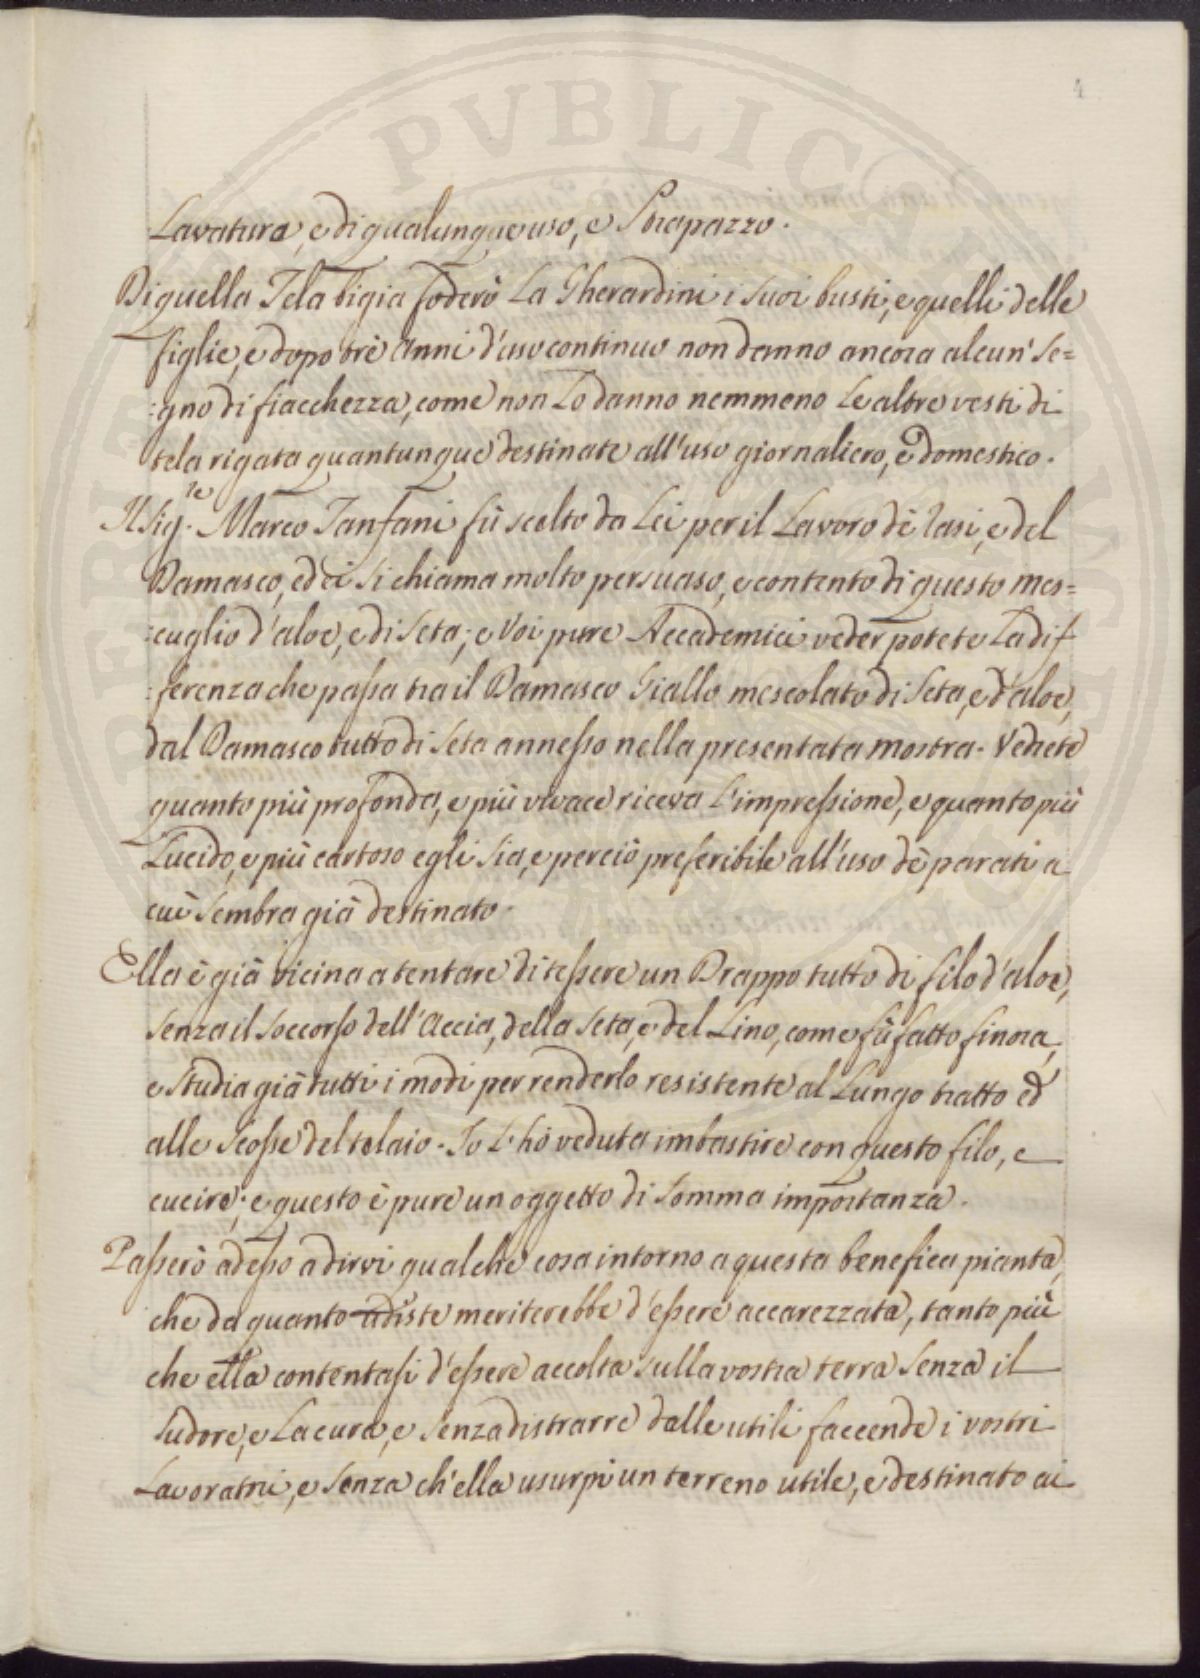 4
Lavatura, e di qualunque uso, e Strapazzo.
Di quella Tela bigia foderò La Gherardini i suoi busti, e quelli delle
figlie, e dopo trè Anni d'uso continuo non danno ancora alcun' Se=
:gno di fiacchezza, come non Lo danno nemmeno Le altre vesti di
tela rigata quantunque destinate all'uso giornaliero, e domestico.
Il Sig.re Marco Tanfani fù scelto da Lei per il Lavoro dè rasi, e del
Damasco, ed ei Si chiama molto persuaso, e contento di questo mes=
:cuglio d'aloe, e di Seta; e Voi pure Accademici veder potete La dif
:ferenza che passa tra il Damasco Giallo mescolato di Seta, e d'aloe,
dal Damasco tutto di Seta annesso nella presentata mostra. Vedrete
quanto più profonda, e più vivace riceva L'impressione, e quanto più
Lucido, e più cartoso egli Sia, e perciò preferibile all'uso dè parati a
cui Sembra già destinato.
Ella è già vicina a tentare di tessere un Drappo tutto di filo d'aloe,
Senza il Soccorso dell'Accia, della Seta, e del Lino, come fù fatto finora,
e Studia già tutti i modi per renderlo resistente al Lungo tratto ed
alle Scosse del telaio. Io L'hò veduta imbastire con questo filo, e
cucire; e questo è pure un oggetto di Somma importanza.
Passerò adesso a dirvi qualche cosa intorno a questa benefica pianta,
che da quanto udiste meriterebbe d'essere accarezzata, tanto più
che ella contentasi d'essere accolta sulla vostra terra Senza il
Sudore, e La cura, e Senza distrarre dalle utili faccende i vostri
Lavoratori, e Senza ch'ella usurpi un terreno utile, e destinato ai